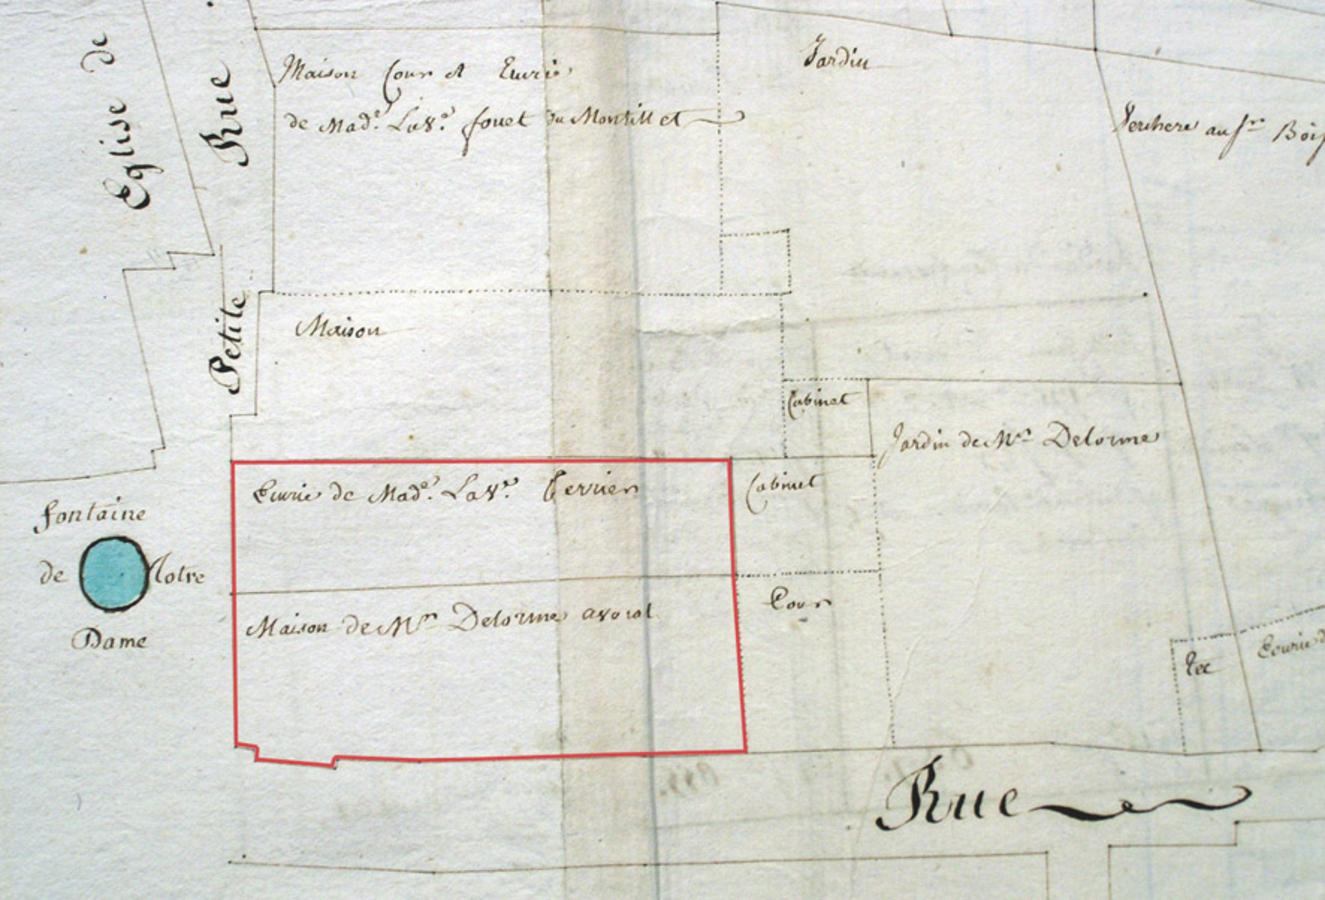 Eglise de
Petite Rue
Maison Cour et Ecurie
de Made. Lave. fouet du Montillet
Jardin
Verchere au Sr. Bois
Maison
Cabinet
Jardin de Mr. Delorme
Ecurie de Made. Lave. Perrier
Cabinet
fontaine
de Notre
Dame
Maison de Mr. Delorme avocat
Cour
Tec
Ecurie d
Rue